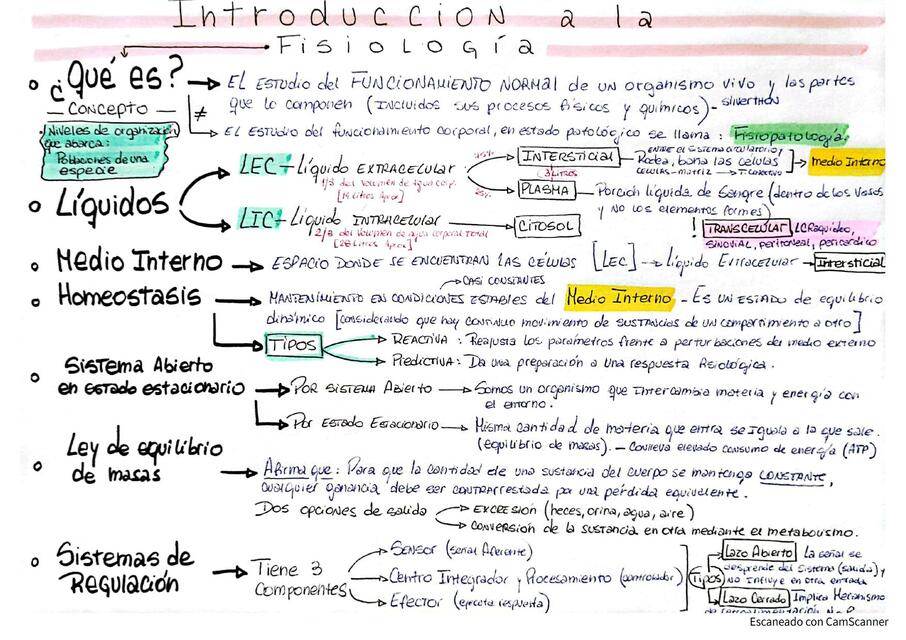 Introducción a la
Fisiología
¿Qué es? → El estudio del FUNCIONAMIENTO NORMAL de un organismo vivo y las partes
que lo componen (incluidos sus procesos físicos y químicos) - Silverthon
— Concepto —
≠ El estudio del funcionamiento corporal, en estado patológico se llama: Fisiopatología.
Niveles de organización
que abarca:
Poblaciones de una
especie
Líquidos
LEC - Líquido EXTRACELULAR
1/3 del volumen de agua corp.
[14 litros Aprox]
INTERSTICIAL
ENTRE EL SISTEMA CIRCULATORIO y
Rodea, baña las células
CÉLULAS - MATRIZ → T. Conectivo
Medio Interno
(3 LITROS)
PLASMA — Porción líquida de Sangre (dentro de los vasos
y no los elementos formes)
LIC - Líquido INTRACELULAR
2/3 del volumen de agua corporal total
[28 litros Aprox]
CITOSOL
! TRANSCELULAR LCRaquídeo,
sinovial, peritoneal, pericárdico
Medio Interno → ESPACIO DONDE SE ENCUENTRAN LAS CÉLULAS [LEC] → Líquido Extracelular → Intersticial
Homeostasis
CASI CONSTANTES
MANTENIMIENTO EN CONDICIONES ESTABLES del Medio Interno - Es un estado de equilibrio
dinámico [considerando que hay continuo movimiento de sustancias de un compartimiento a otro]
TIPOS
REACTIVA: Reajusta los parámetros frente a perturbaciones del medio externo
PREDICTIVA: Da una preparación a una respuesta fisiológica.
Sistema Abierto
en estado estacionario
Por sistema Abierto → Somos un organismo que Intercambia materia y energía con
el entorno.
Por Estado Estacionario → Misma cantidad de materia que entra se iguala a la que sale.
(equilibrio de masas). — Conlleva elevado consumo de energía (ATP)
Ley de equilibrio
de masas
Afirma que: Para que la cantidad de una sustancia del cuerpo se mantenga CONSTANTE,
cualquier ganancia debe ser contrarrestada por una pérdida equivalente.
Dos opciones de salida
EXCRESIÓN (heces, orina, agua, aire)
CONVERSIÓN de la sustancia en otra mediante el metabolismo.
Sistemas de
Regulación
Tiene 3
Componentes
Sensor (señal Aferente)
Centro Integrador y Procesamiento (controlador)
Efector (ejecuta respuesta)
Tipos
Lazo Abierto La señal se
desprende del Sistema (salida) y
no influye en otra entrada
Lazo Cerrado Implica Mecanismo
Escaneado con CamScanner